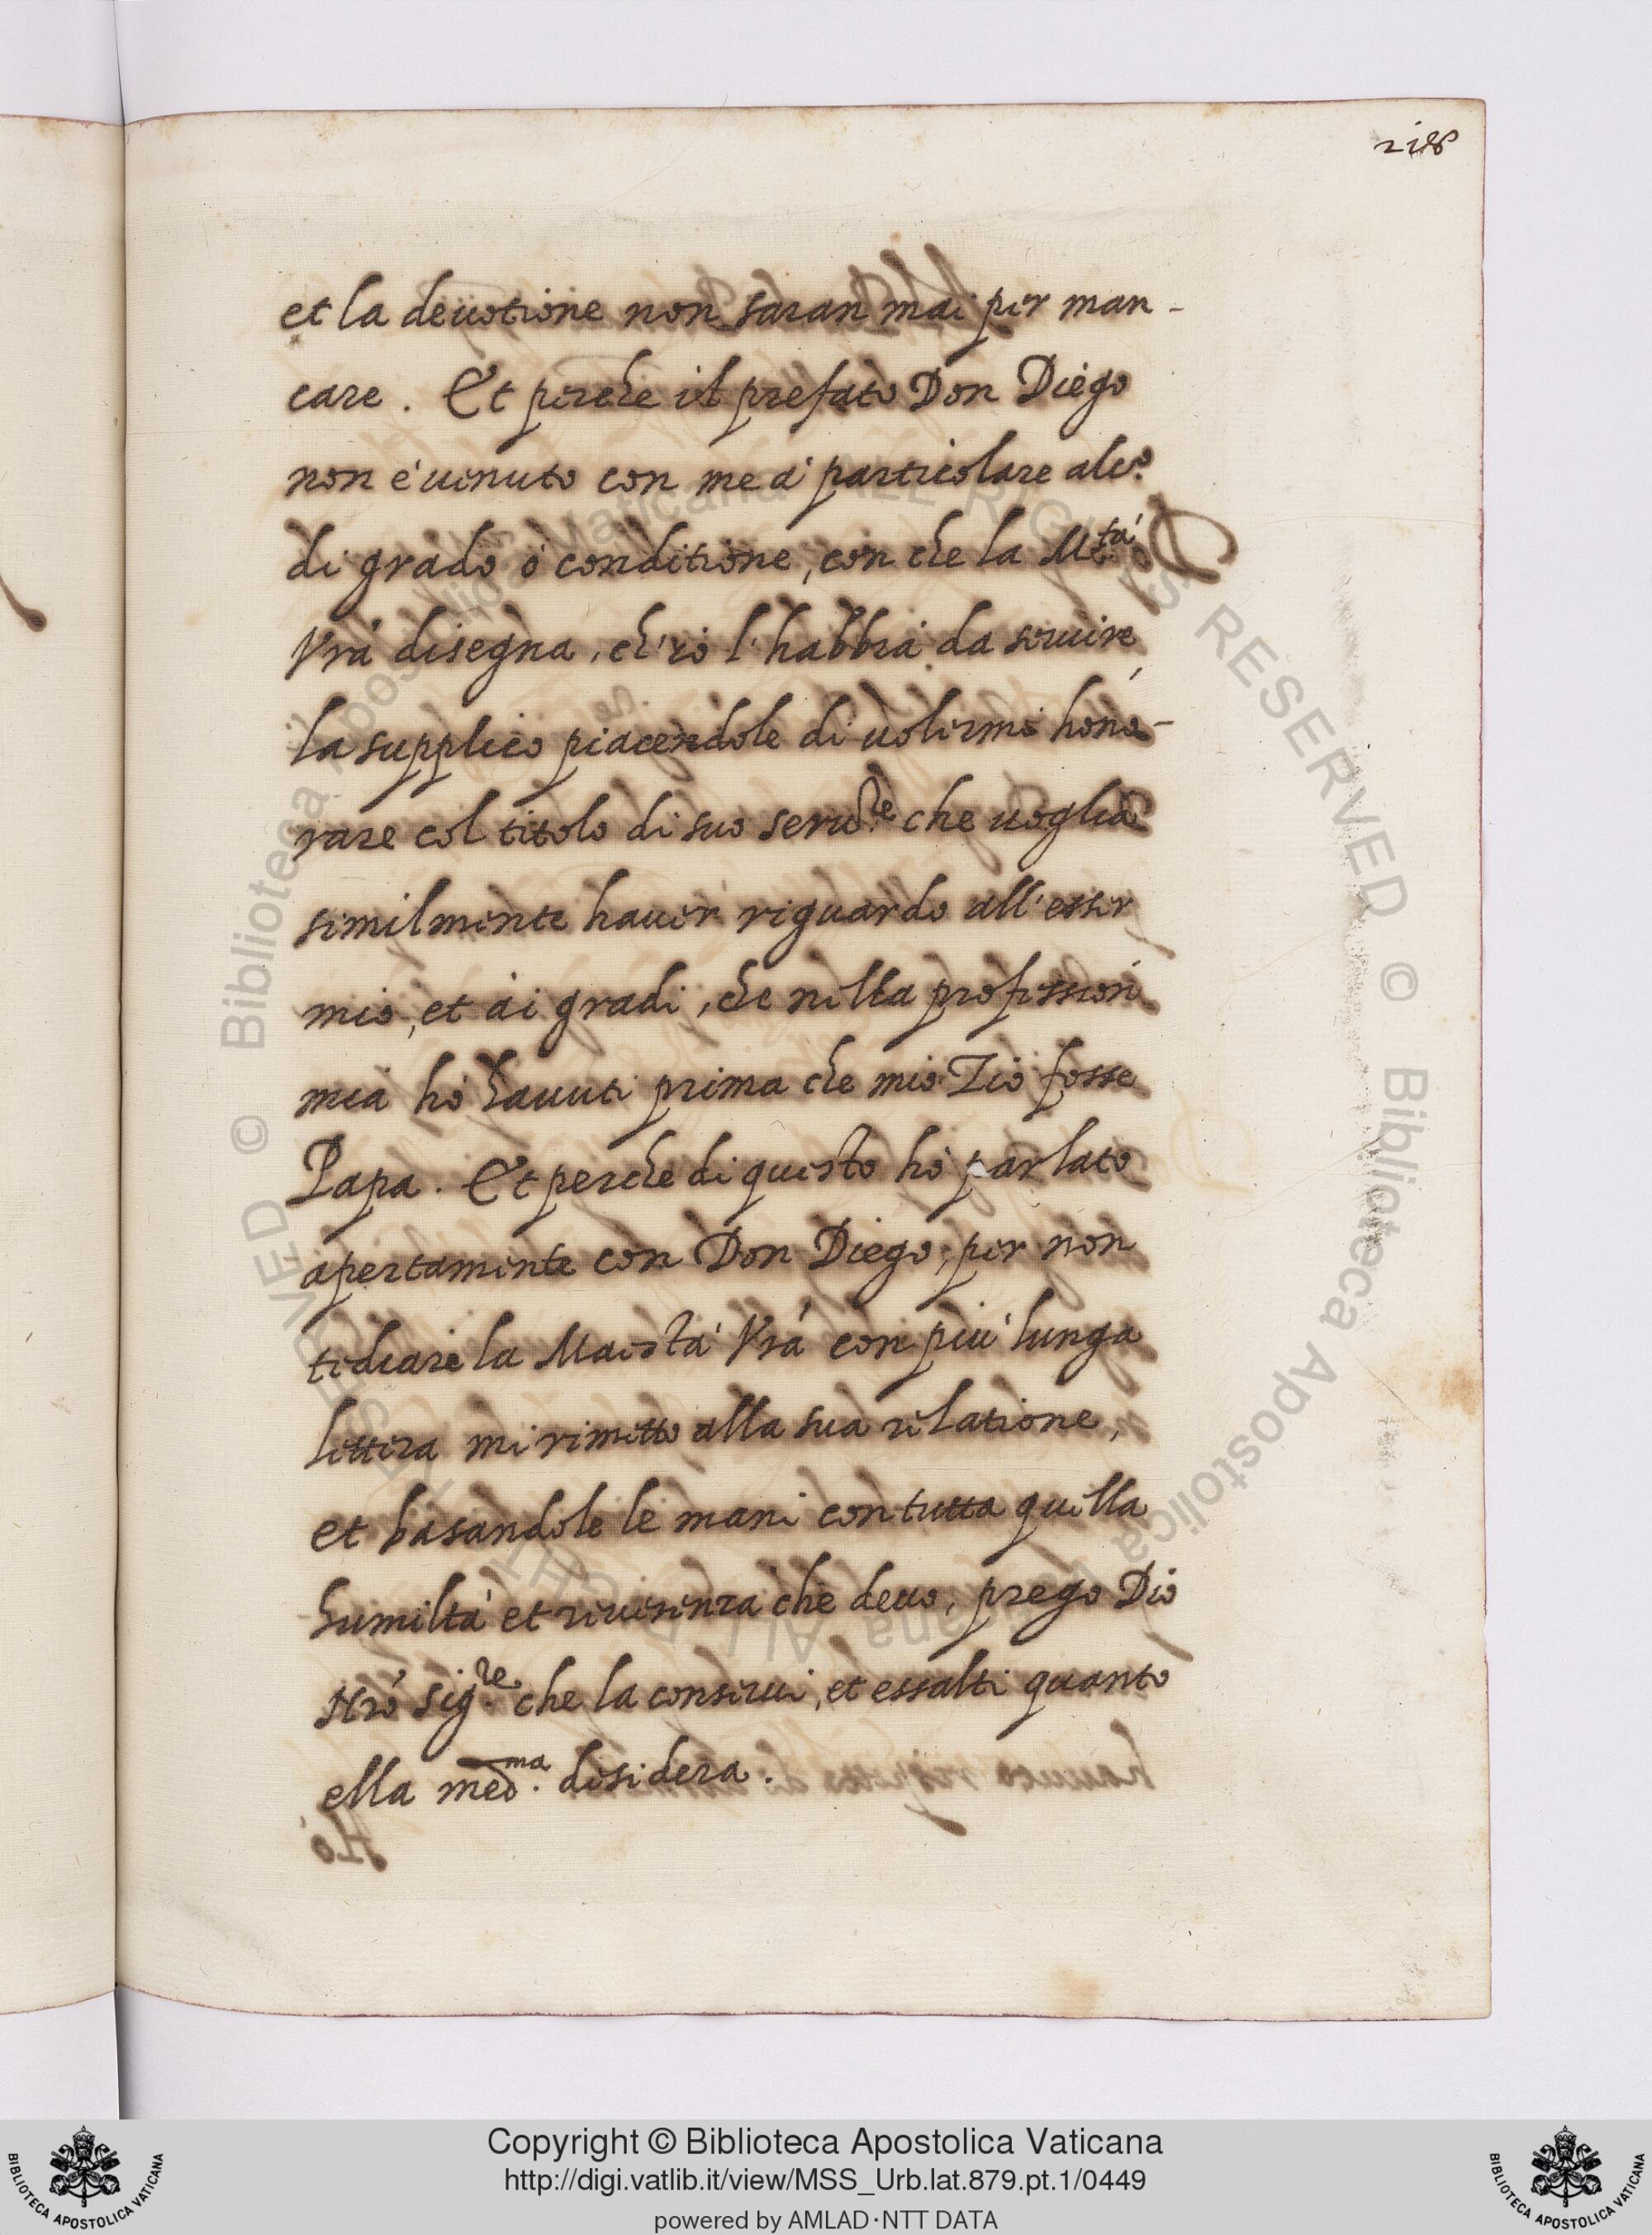 218
et la deuotione non saran mai per man-
care. Et perche il prefato Don Diego
non è uenuto con me à particolare alc.º
di grado ò conditione, con che la M.tà
Vrá disegna, ch'io l'habbia da seruire
la supplico piacendole di uolermi hono-
rare col titolo di suo seru.re che uoglia
similmente hauer riguardo all'esser
mio, et ai gradi, che nella profession
mia hò hauuti prima che mio Zio fosse
Papa. Et perche di questo hò parlato
apertamente con Don Diego, per non
tediare la Maestà Vrá con più lunga
lettera mi rimetto alla sua relatione,
et basandole le mani con tutta quella
humiltà et riuerenza che deuo, prego Dio
Nró Sig.re che la conserui, et essalti quanto
ella med.ma desidera.
Copyright © Biblioteca Apostolica Vaticana
http://digi.vatlib.it/view/MSS_Urb.lat.879.pt.1/0449
powered by AMLAD·NTT DATA
BIBLIOTECA APOSTOLICA VATICANA
BIBLIOTECA APOSTOLICA VATICANA
© Biblioteca Apostolica Vaticana ALL RIGHTS RESERVED © Biblioteca Apostolica Vaticana ALL RIGHTS RESERVED